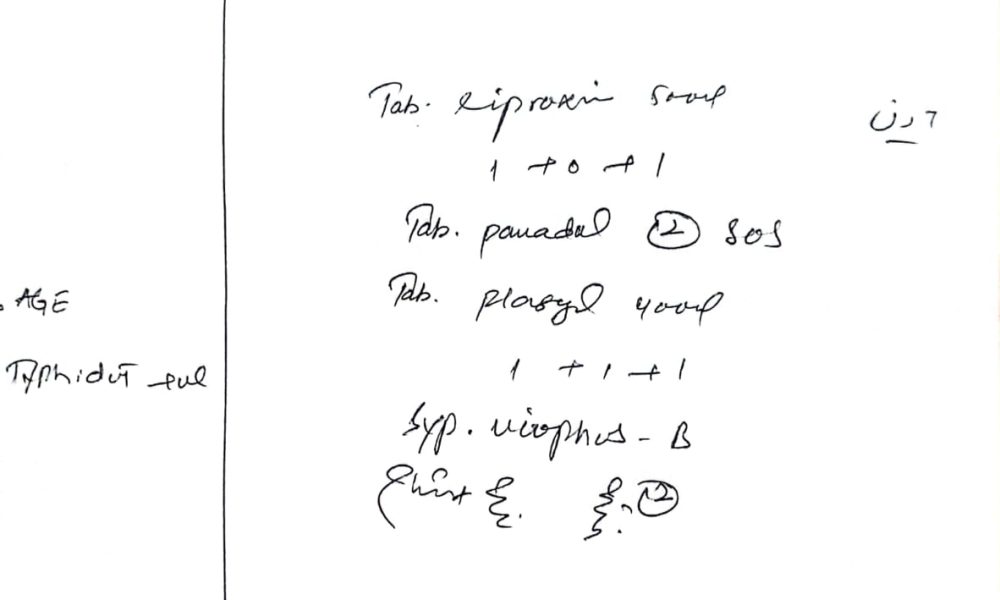 Tab. Ciproxin 500mg
۶ دن
1 + 0 + 1
Tab. panadol ② SOS
Tab. Flagyl 400mg
1 + 1 + 1
Syp. - B
②
AGE
Typhidot +ve